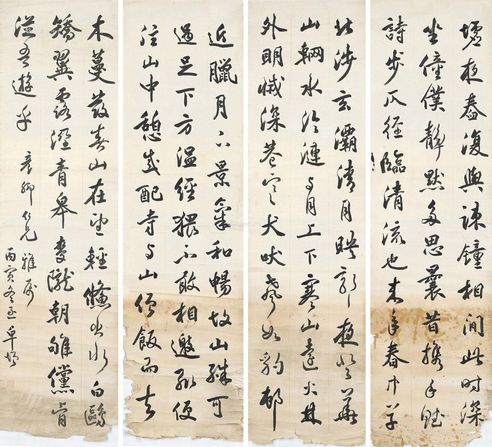 近臘月下景氣和暢故山殊可
過足下方温經猥不敢相邀輒便
往山中憩感配寺與山僧飯而去
北涉玄灞清月映郭夜登華
山輞水淪漣與月上下寒山遠火林
外明滅深巷寒犬吠聲如豹邨
墟夜舂復與疎鐘相間此時深
坐僮僕靜默多思曩昔攜手賦
詩步仄徑臨清流也來年春中草
木蔓發春山在望輕鯈出水白鷗
矯翼露溼青皋麥隴朝雊儻肯
從吾遊乎
仁兄雅屬
丙寅冬至